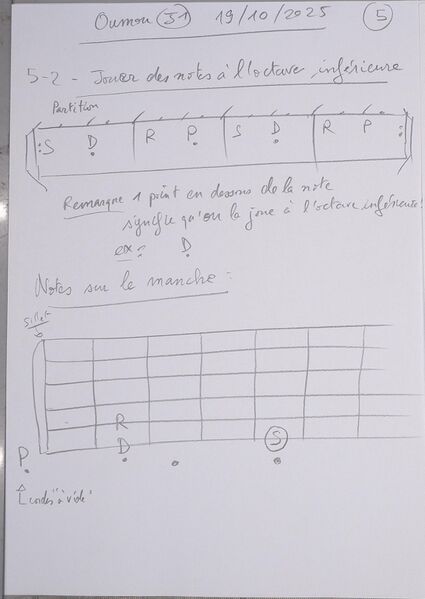 Oumou J1 19/10/2025 5
5-2 - Jouer des notes à l'octave inférieure
Partition
: S Ḍ R P̣ S Ḍ R P :
Remarque 1 point en dessous de la note
signifie qu'on la joue à l'octave inférieure!
ex : Ḍ
Notes sur le manche :
Sillet
R
P̣ Ḍ S
cordes "à vide"